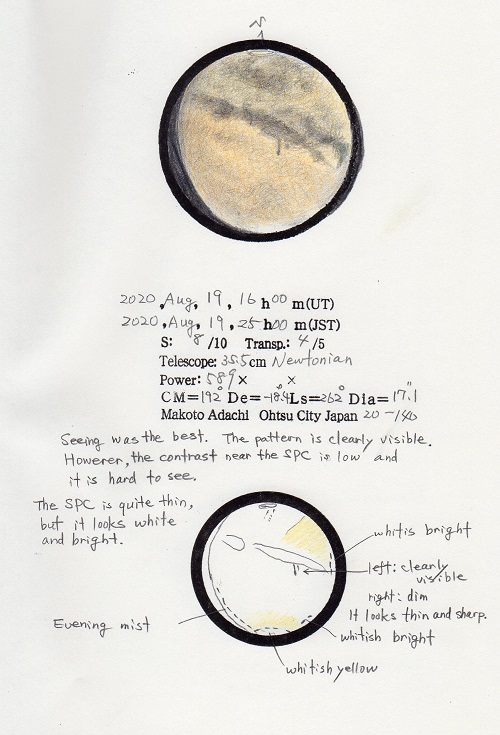 N
2020, Aug, 19, 16 h 00 m (UT)
2020, Aug, 19, 25 h 00 m (JST)
S: 8 /10 Transp.: 4 /5
Telescope: 35.5 cm Newtonian
Power: 589 × ×
CM=192° De=-18.4° Ls=262° Dia=17.1"
Makoto Adachi Ohtsu City Japan 20-140
Seeing was the best. The pattern is clearly visible.
However, the contrast near the SPC is low and
it is hard to see.
The SPC is quite thin,
but it looks white
and bright.
whitis bright
left: clearly
visible
right: dim
It looks thin and sharp.
Evening mist
whitish bright
whitish yellow